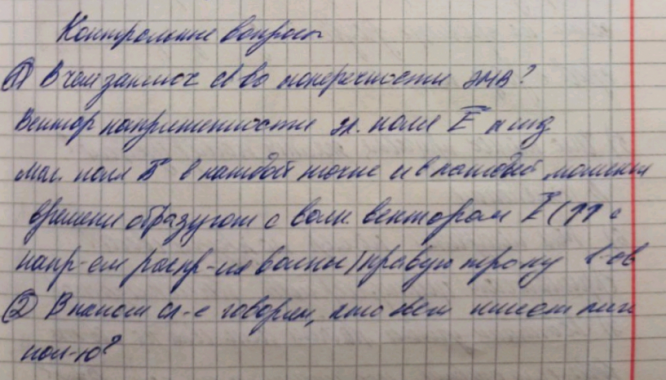 Контрольные вопросы
1) В чем заключ св-во поперечности ЭМВ?
Вектор напряженности эл. поля E и инд
маг. поля B в каждой точке и в каждый момент
времени образуют с волн. вектором (↑↑ с
напр-ем распр-ия волны) правую тройку в-ов
2) В каком сл-е говорят, что свет имеет лин
пол-ю?